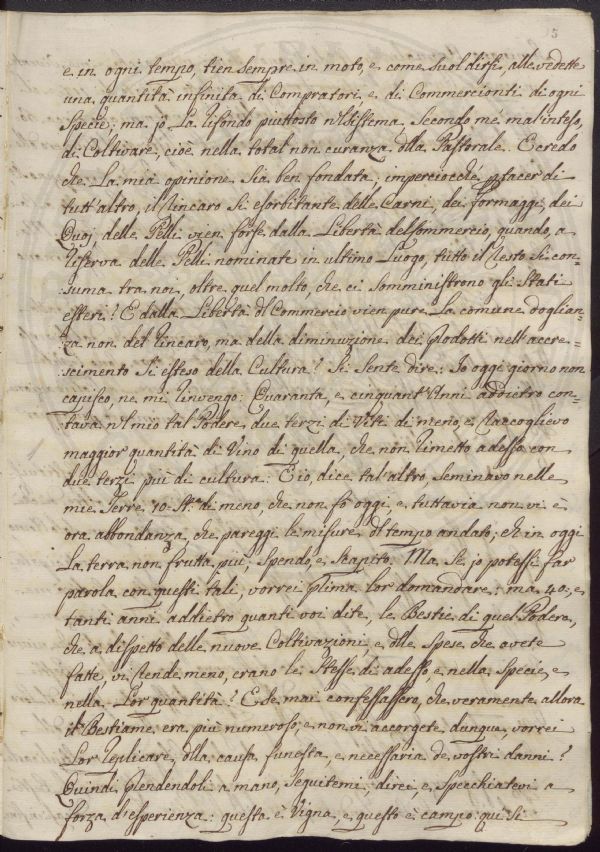 5
e in ogni tempo, tien sempre in moto, e come suol dirsi, alle vedette
una quantità infinita di Compratori e di Commercianti di ogni
Specie; ma jo La rifondo piuttosto n'l sistema Secondo mé mal'inteso,
di Coltivare, cioè nella total non curanza d'lla Pastorale. E credo
che La mia opinione Sia ben fondata; imperciocché, ptacer di
tutt'altro, il rincaro Si esorbitante delle Carni, dei formaggi, dei
Quoj, delle Pelli vien forse dalla Libertà del Commercio, quando, a
riserva delle Pelli nominate in ultimo Luogo, tutto il resto Si con=
suma tra noi, oltre quel molto, che ci Somministrono gli Stati
esteri? E dalla Libertà d'l Commercio vien pure La comune doglian=
za non del rincaro, ma della diminuzione dei prodotti nell'accre=
scimento Si esteso della Cultura? Si Sente dire: Io oggi giorno non
capisco, ne mi rinvengo: Quaranta, e cinquant'Anni addietro con=
tava n'l mio tal Podere due terzi di Viti di meno, e raccoglievo
maggior quantità di Vino di quella, che non rimetto adesso con
due terzi più di cultura. E io, dice tal'altro, Seminavo nelle
mie Terre 10 St.ª di meno, che non fò oggi, e tuttavia non vi è
ora abbondanza, che pareggi le misure d'l tempo andato; che in oggi
La terra non frutta più, Spendo, e Scapito. Ma Se jo potessi far
parola con questi tali, vorrei prima Lor domandare: ma 40:, e
tanti anni addietro quanti voi dite, le Bestie di quel Podere,
che a dispetto delle nuove Coltivazioni, e d'lle Spese, che avete
fatte, vi rende meno, erano le Stesse di adesso, e nella Specie, e
nella Lor quantità? E Se mai confessassero, che veramente allora
il Bestiame era più numeroso; e non vi accorgete dunque, vorrei
Lor replicare, d'lla causa funesta, e necessaria de' vostri danni?
Quindi prendendoli a mano, Seguitemi, direi, e Specchiatevi a
forza d'esperienza: questa è Vigna, e questo è campo: qui Si